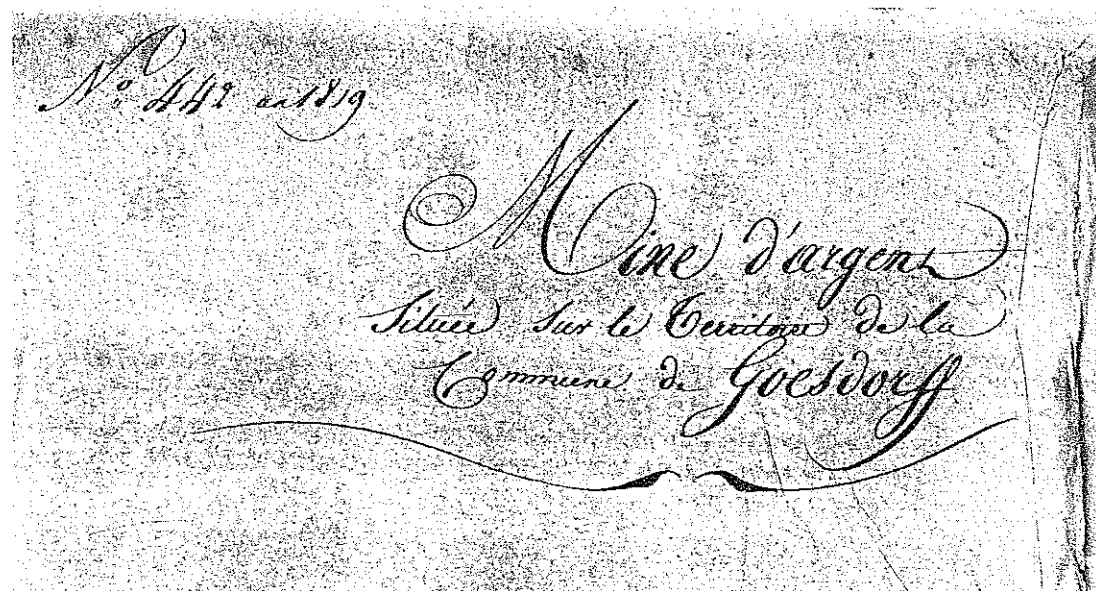 N.º 442 an 1819
Mine d'argent
Située Sur le Territoire de la
Commune de Goesdorff